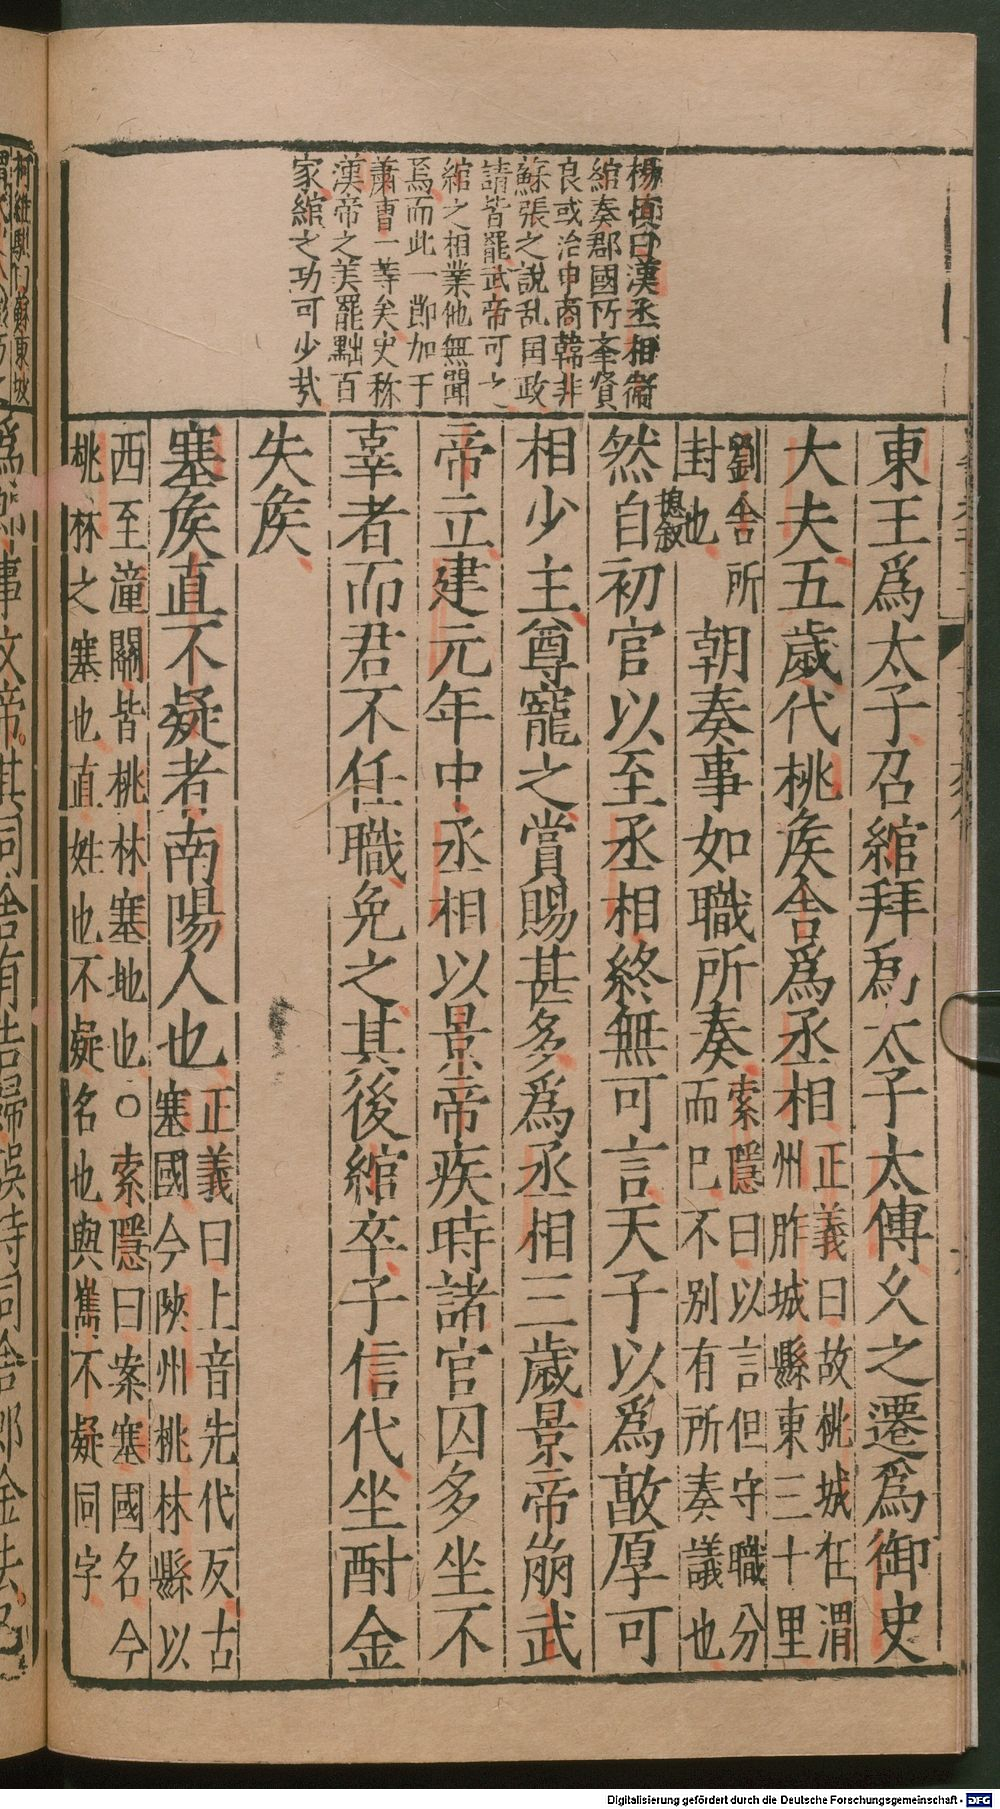 楊慎曰漢丞相衛
綰奏郡國所奉賢
良或治申商韓非
蘇張之說乱国政
請皆罷武帝可之
綰之相業他無聞
焉而此一節加于
蕭曹一等矣史称
漢帝之美罷黜百
家綰之功可少哉
東王爲太子召綰拜爲太子太傅久之遷爲御史
大夫五歲代桃侯舍爲丞相
正義曰故桃城在渭
州胙城縣東三十里
劉舍所
封也
朝奏事如職所奏
索隱曰以言但守職分
而已不別有所奏議也
揔敘
然自初官以至丞相終無可言天子以爲敦厚可
相少主尊寵之賞賜甚多爲丞相三歲景帝崩武
帝立建元年中丞相以景帝疾時諸官囚多坐不
辜者而君不任職免之其後綰卒子信代坐酎金
失侯
塞侯直不疑者南陽人也
正義曰上音先代反古
塞國今陝州桃林縣以
西至潼關皆桃林塞地也○索隱曰案塞國名今
桃林之塞也直姓也不疑名也與雋不疑同字
Digitalisierung gefördert durch die Deutsche Forschungsgemeinschaft - DFG